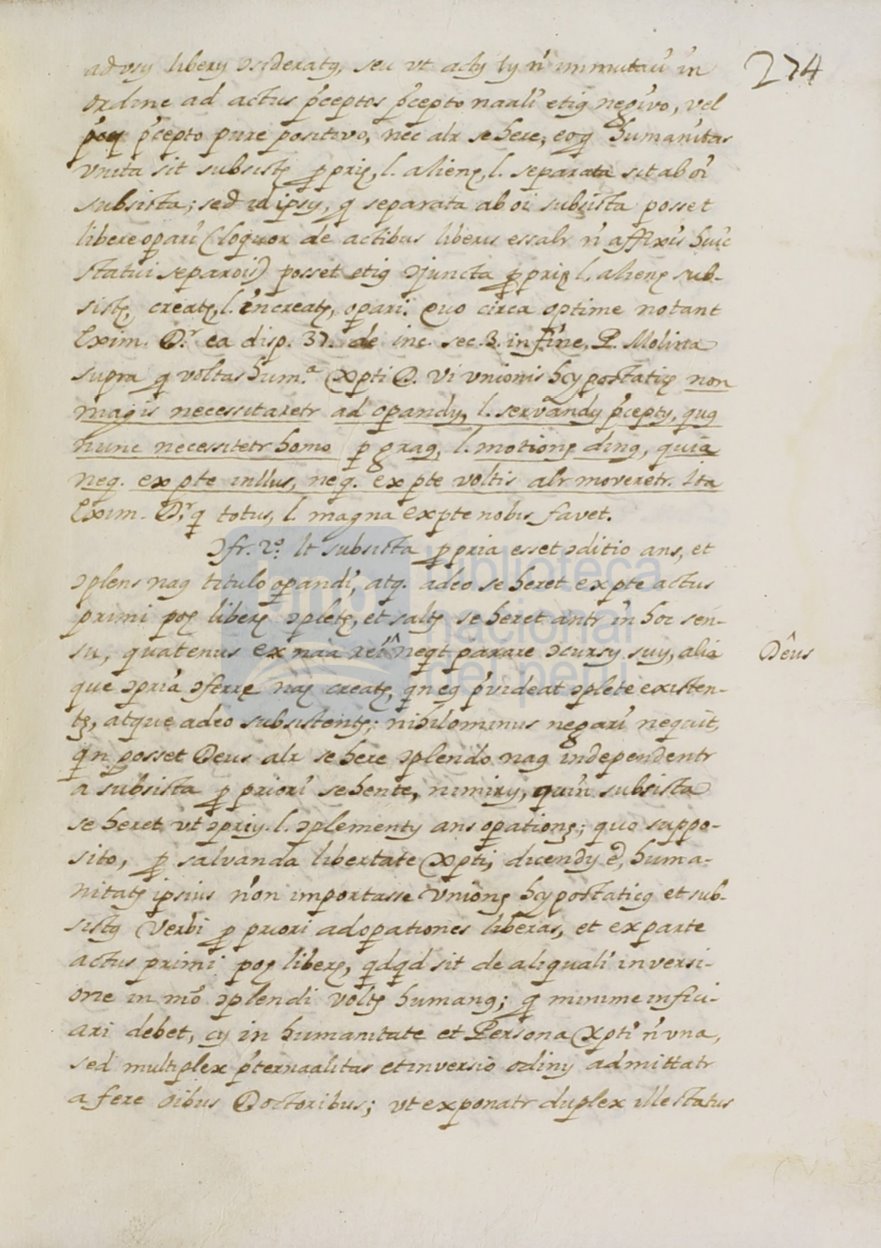 274
ad usy libery ɔsideratą, seu ut acty ly n̄ immutari in
ordine ad actus p̄ceptos p̄cepto naali etią negivo, vel
p̄cepto pure positivo, nec alr se here, eoq humanitas
unita sit subsistę ꝓprię, l. alienę, l. separata sit ab oi
subsista; sed id ipsy, q separata ab oi subsista posset
libere opari (loquor de actibus liberis essalr n̄ affixis huic
statui separois) posset etią ɔjuncta ꝓprię l. alienę sub-
sistę, creatę, l. increatę, opari. Quo circa optime notant
Exim. Dr. ea disp. 37. de inc. sec. 3. in fine, P. Molina
supra q voltas hum.a Xpti D. vi unionis hypostatię non
magis necessitaretr ad operandy, l. servandy p̄cepty, quą
nunc necessitetr homo p graą, l. motionę diną, quia
neq. ex pte inllus, neq. ex pte voltis alr moveretr. Ita
Exim. Dr. q totus, l. magna ex pte nobis favet.
ɔfr. 2o. lt subsista ꝓpria esset ɔditio ans, et
ɔplens naą titulo opandi, atq. adeo se heret ex pte actus
primi poę liberę ɔpletę, et saltę se heret antr in hoc sen-
su, quatenus ex naa reiˆ neqt parare ɔcursy suy, alia
Dˆeus
que ɔpria ɔferre naę creatę, qn eą p̄videat ɔplete existen-
tę, atque adeo subsistentę; nihilominus negari nequit,
qn posset Deus alr se here ɔplendo naą independentr
a subsista ꝓ priori se hente, nimiry, quin subsista
se heret ut ɔpriy. l. ɔplementy ans operationę; quo suppo-
sito, ꝓ salvanda libertate Xpti, dicendy ē, huma-
nitatę ipsius non importasse unionę hypostatică et sub-
sistą Verbi ꝓ priori ad operationes liberas, et ex parte
actus primi poę liberę, qdqd sit de aliquali inversi-
one in mo ɔplendi voltę humană; q minime infici-
ari debet, cy in humanitate et Persona Xpti n̄ una,
sed multiplex p̄ternaalitas et inversio ordiny admittatr
a fere oibus Doctoribus; ut exponatr duplex ille status
biblioteca
nacional
del perú